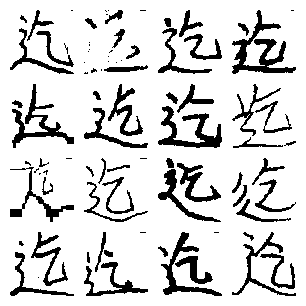 迄迄迄迄
迄迄迄迄
迄迄迄迄
迄迄迄迄